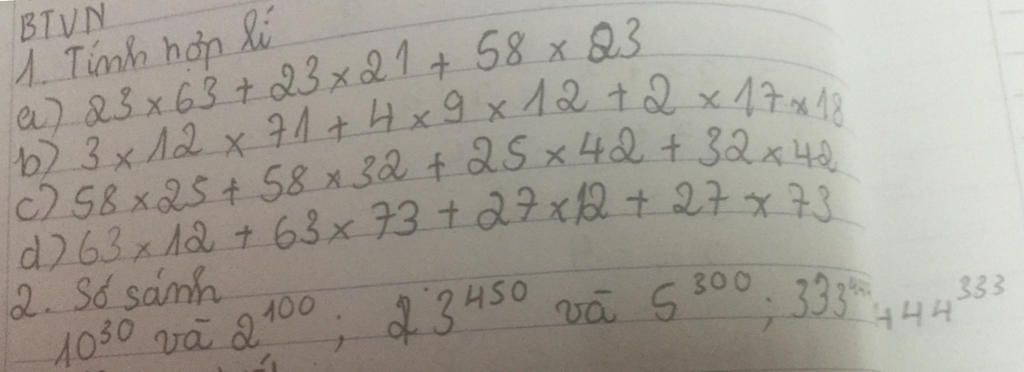 BTVN
1. Tính hợp lí
a) 23 × 63 + 23 × 21 + 58 × 23
b) 3 × 12 × 71 + 4 × 9 × 12 + 2 × 17 × 18
c) 58 × 25 + 58 × 32 + 25 × 42 + 32 × 42
d) 63 × 12 + 63 × 73 + 27 × 12 + 27 × 73
2. Số sánh
10³⁰ và 2¹⁰⁰ ; 3⁴⁵⁰ và 5³⁰⁰ ; 333⁴⁴⁴ 444³³³